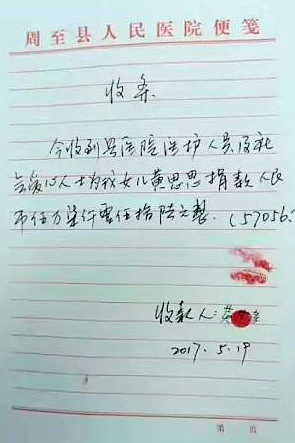 周至县人民医院便笺
收条
今收到县医院医护人员及社
会爱心人士为我女儿黄思思捐款人民
币伍万柒仟零伍拾陆元整. (57056.
收款人: 黄
2017. 5. 19
第 页